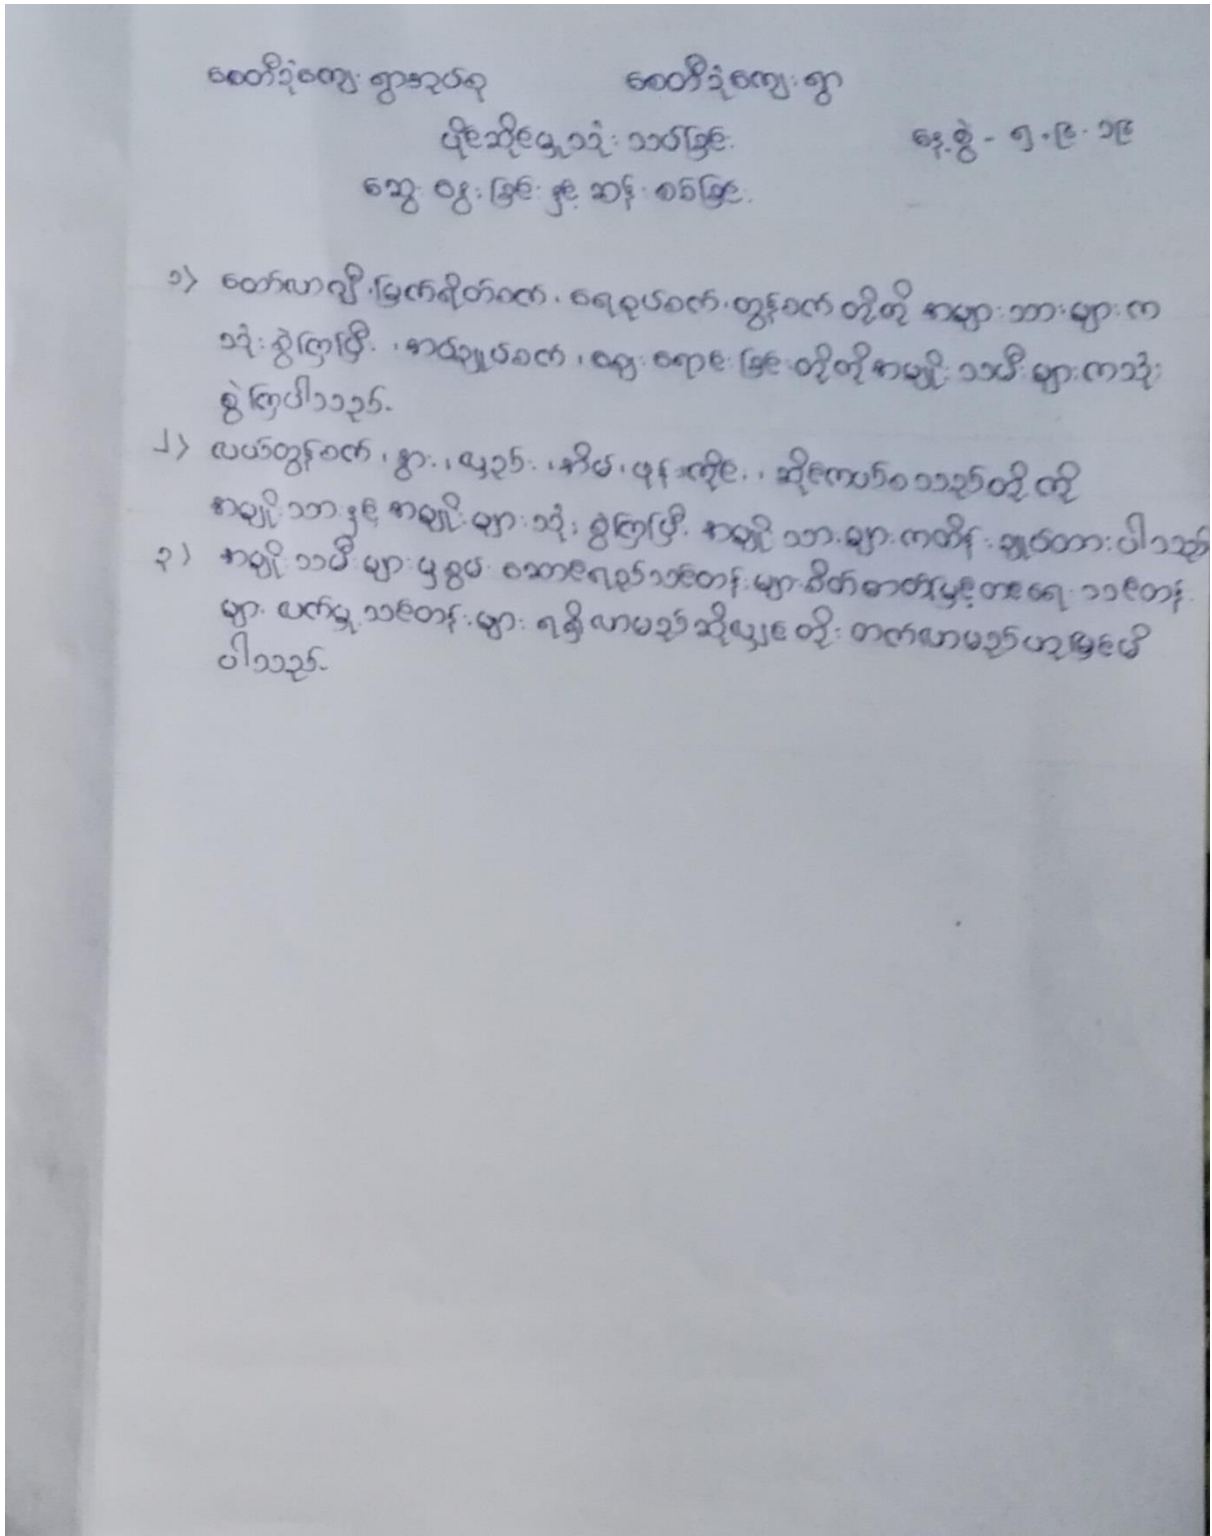 စေတီဒုံကျေးရွာအုပ်စု စေတီဒုံကျေးရွာ
ပိုင်ဆိုင်မှုသုံးသပ်ခြင်း နေ့စွဲ - ၅.၉.၁၉
ဆွေးနွေးခြင်းနှင့် ဆန်းစစ်ခြင်း
၁) ထော်လာဂျီ၊ မြက်ရိတ်စက်၊ ရေစုပ်စက်၊ ထွန်စက် တို့ကို အများသားများက
သုံးစွဲကြပြီး၊ အပ်ချုပ်စက်၊ ဈေးရောင်းခြင်းတို့ကိုအမျိုးသမီးများကသုံး
စွဲကြပါသည်။
၂) လယ်ထွန်စက်၊ နွား၊ လှည်း၊ အိမ်၊ ဖုန်းကိုင်၊ ဆိုင်ကယ်စသည်တို့ကို
အမျိုးသားနှင့် အမျိုးများသုံးစွဲကြပြီး အမျိုးသားများကထိန်းချုပ်ထားပါသည်
၃) အမျိုးသမီးများမှစွမ်းဆောင်ရည်သင်တန်းများစိတ်ဓာတ်မြှင့်တင်ရေးသင်တန်း
များ လက်မှုသင်တန်းများ ရရှိလာမည်ဆိုလျှင်တိုးတက်လာမည်ဟုမြင်မိ
ပါသည်။